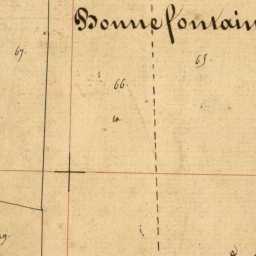 Bonnefontain
67
65
66